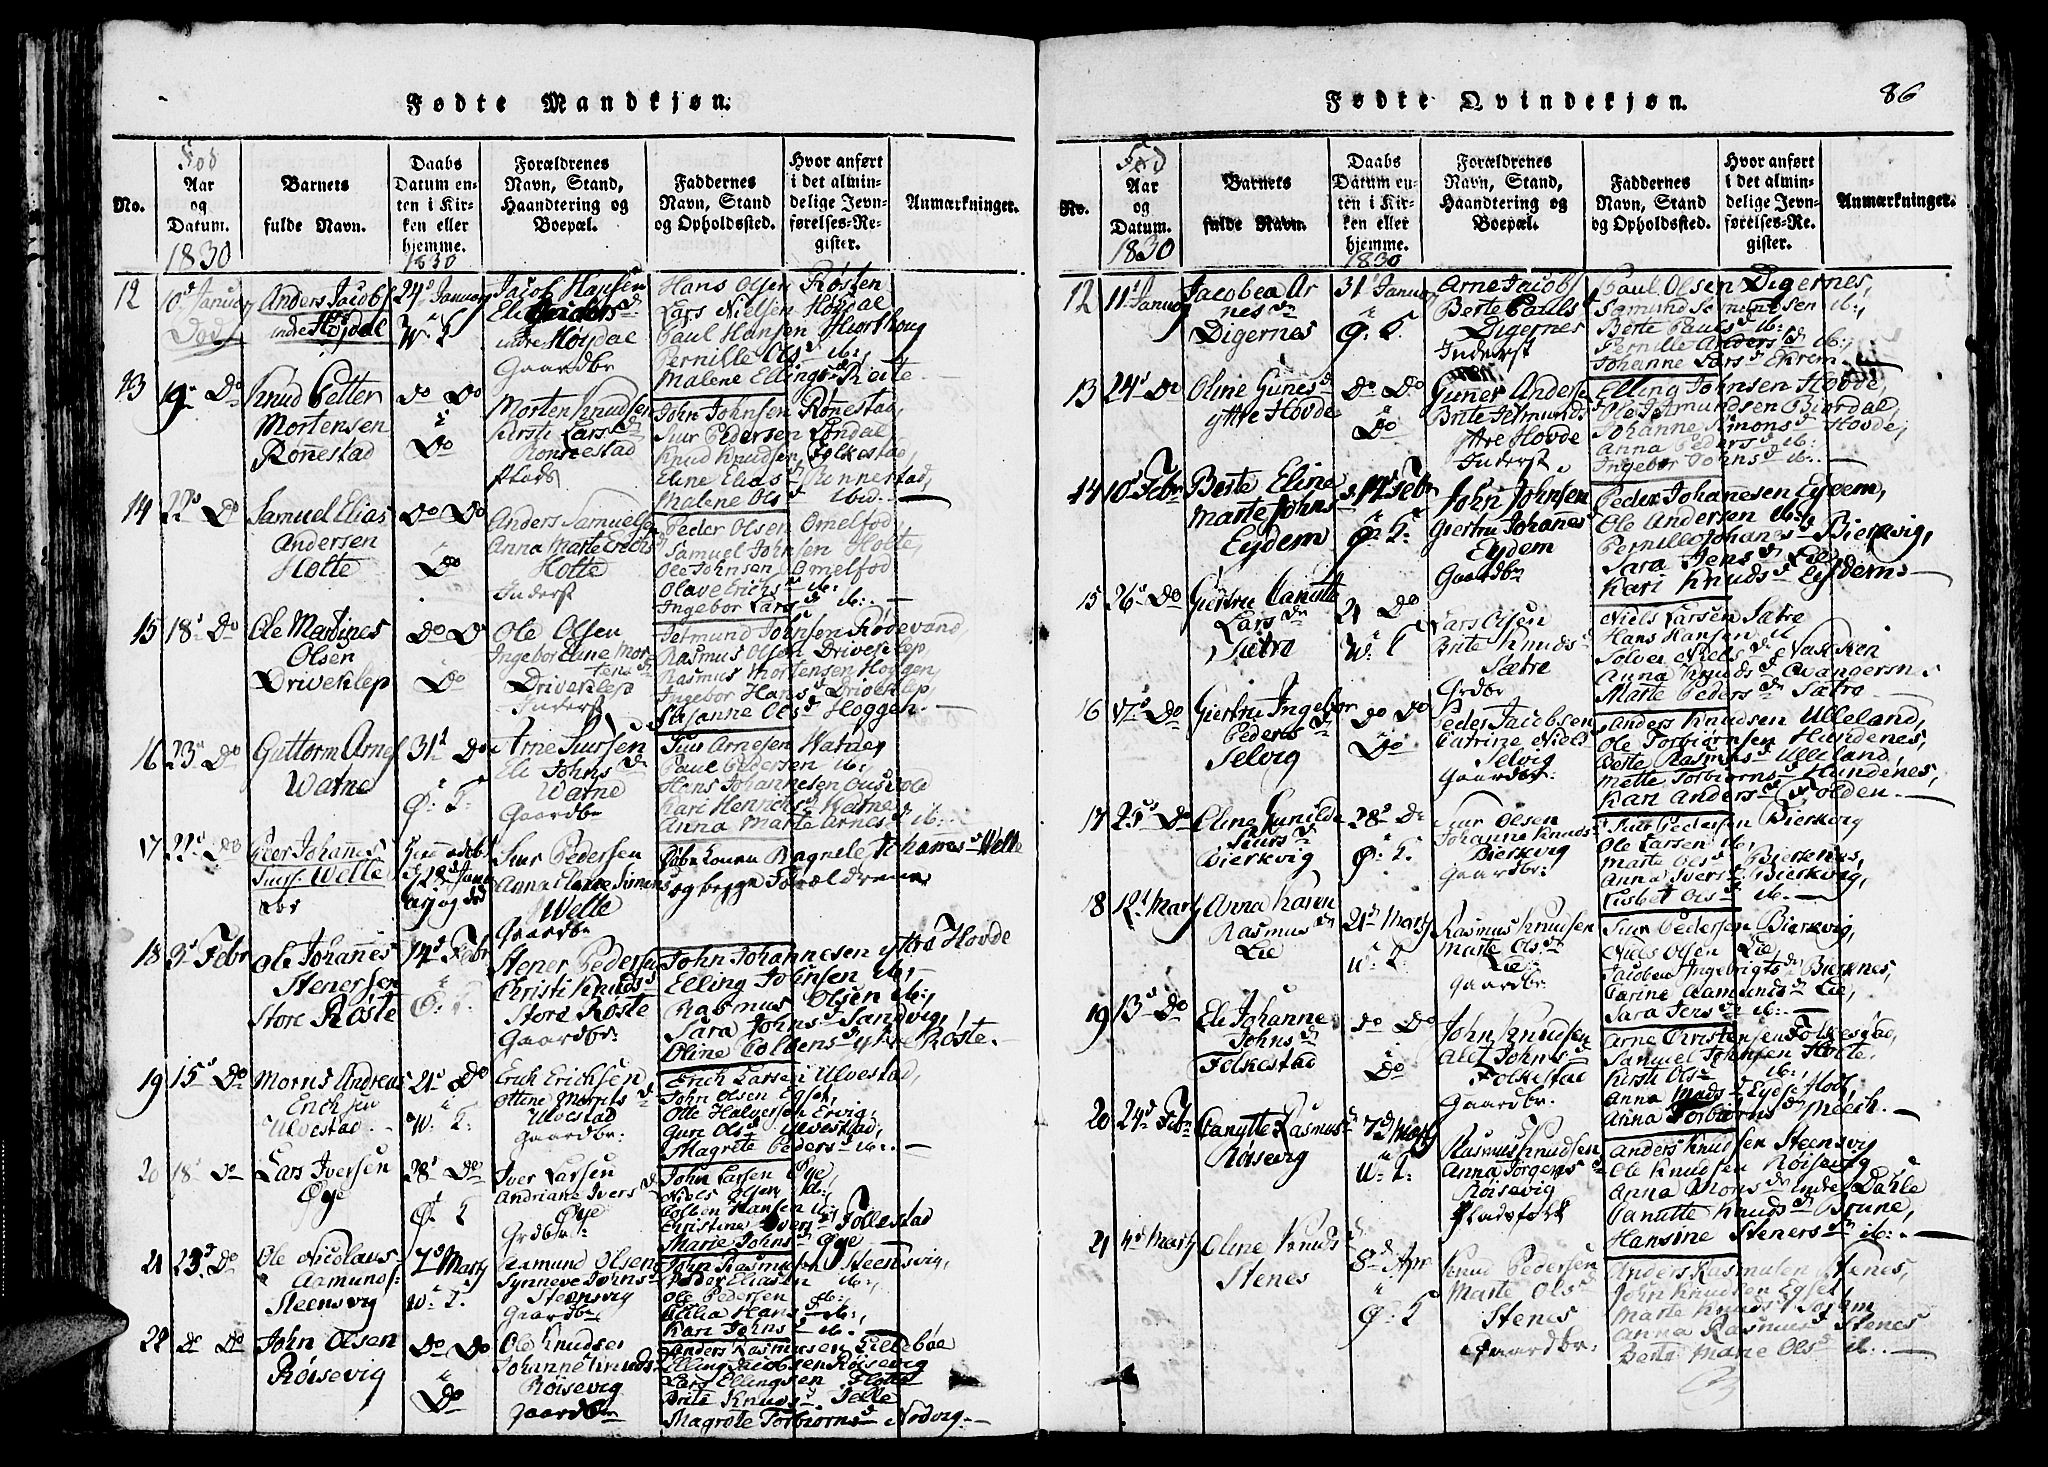 Fødte Mandkjøn.
No.
Fød
Aar
og
Datum.
1830
Barnets
fulde Navn.
Daabs
Datum en-
ten i Kir-
ken eller
hjemme.
1830
Forældrenes
Navn, Stand,
Haandtering og
Boepæl.
Faddernes
Navn, Stand
og Opholdssted.
Hvor anført
i det almin-
delige Jevn-
førelses-Re-
gister.
Anmærkninger.
12
10d Januar
Død
Anders Jacobs
indre Højdal
24d Januar
W. K
Jacob Hansen
Eli
indre Høydal
Gaardbr
Hans Olsen Røsten
Lars Nielsen Høydal
Paul Hansen Hiorthoug
Pernille Olsd ib:,
Malene Ellingsd Reite
13
19d Do
Knud Petter
Mortensen
Rønestad
Do Do
i
Do
Morten Knudsen
Kirsti Larsd
Ronnestad
Plads
John Johnsen Rønestad,
Siur Pedersen Løndal
Knud Knudsen Folkestad,
Eline Eliasd Rinnerstad,
Malene Olsd ibid.
14
22d Do
Samuel Elias
Andersen
Hotte
Do Do
i
Do
Anders Samuelsen
Anna Marte Erichsd
Hotte
Inderst
Peder Olsen Omelfod,
Samuel Johnsen Hotte,
Ole Johnsen Omelfod
Olave Erichsd ib:
Ingebor Larsd ib:
15
18d Do
Ole Martines
Olsen
Driveklep
Do D
Do
Ole Olsen
Ingebor Eline Mor
tensd
Driveklep
Inderst
Jetmund Johnsen Rødevand,
Rasmus Olsen Driveklep,
Rasmus Mortensen Hoggen,
Ingebor Hansd Driveklep,
Susanne Olsd Hoggen.
16
23d Do
Guttorm Arnes
Watne
31d Do
i
Ø. K.
Arne Siursen
Eli Johnsd
Watne
Gaardbr
Siur Arnesen Watne
Paul Pedersen ib:
Hans Johannesen
Kari Henrichsd Watne
Anna Marte Arnesd ib:
17
22d Do
Peer Johanes
Siurs. Welle
Siur Pedersen
Anna
Welle
Gaardbr
Ragnele Johannesd Welle
og begge Forældrene
18
3d Febr
Ole Johanes
Stenersen
Store Røste
14d Febr
i
Ø. K.
Stener Pedersen
Christi Knudsd
Store Røste
Gaardbr:
John Johannesen ytre Hovde
Elling Johnsen ib:
Rasmus Olsen ib:,
Sara Johnsd Sandvig,
Oline Coldensd ytre Røste.
19
15d Do
Morris Andreas
Erichsen
Ulvestad
21d Do
i
W. K.
Erich Erichsen
Ottine Morritsd
Ulvestad
Gaardbr:
Erich Larsen Ulvestad,
John Olsen Egset,
Ole Halversen Ervig,
Guri Olsd Ulvestad,
Magrete Pedersd ib:.
20
18d Do
Lars Iversen
Øye
28d Do
i
Ø. K
Iver Larsen
Andriane Iversd
Øye
Grdbr:
John Larsen Øye,
Niels Olsen ib:,
Colben Hansen ib:
Christine Iversd Follestad
Marie Johnsd Øye
21
23d Do
Ole Nicolaus
Aamunds.
Steensvig
7d Marty
i
W. K.
Aamund Olsen
Synneve Johnsd
Steensvig
Gaardbr
John Rasmusen Steensvig,
Peder Eliasen ib:,
Ole Pedersen ib:
Cilia Hansd ib:,
Kari Johnsd ib:
22
Do Do
John Olsen
Røisevig
Do Do
i
Do
Ole Knudsen
Johanne Knudsd
Røisevig
Gaardbr
Anders Rasmusen Lillebøe
Elling Jacobsen Røisevig
Lars Ellingsen Flotte
Brite Knudsd Selle
Magrete Torbiornsd Nedvig.
Fødte Qvindekjøn.
86
No.
Fød
Aar
og
Datum.
1830
Barnets
fulde Navn.
Daabs
Datum en-
ten i Kir-
ken eller
hjemme.
1830
Forældrenes
Navn, Stand,
Haandtering og
Boepæl.
Faddernes
Navn, Stand
og Opholdssted.
Hvor anført
i det almin-
delige Jevn-
førelses-Re-
gister.
Anmærkninger.
12
11d Januar
Jacobea Ar
nesd
Digernes
31d Januar
i
Ø. K.
Arne Jacobs
Berte Paulsd
Digernes
Inderst
Paul Olsen Digernes,
Samund Semundsen ib:,
Berte Paulsd ib:
Pernille Andersd ib:
Johanne Larsd Ekrem
13
24d Do
Oline Gunesd
ytre Hovde
Do Do
i
Do
Guner Anderse
Brite Jetmundsd
ytre Hovde
Inderst
Elling Johnsen Hovde,
Ole Jetmundsen Biørdal,
Johanne Simonsd Hovde,
Anna Pedersd ib:
Ingebor Johnsd ib:
14
10d Febr
Berte Eline
Marte Johnsd
Eydem
14d Febr
i
Ø. K.
John Johnsen
Giertru Johanesd
Eydem
Gaardbr
Peder Johannesen Eydem,
Ole Andersen ib:,
Pernille Johanesd Bierkvig,
Sara Jensd Lie
Kari Knudsd Eydem
15
26d Do
Giertru Canutte
Larsd
Sætre
21 Do
i
W. K
Lars Olsen
Brite Knudsd
Sætre
Grdbr
Niels Larsen Sætre
Hans Hansen ib
Solvei Nielsd Nakken
Anna Knudsd
Marte Pedersd Sætre
16
17d Do
Giertru Ingebor
Pedersd
Selvig
Do Do
i
Do
Peder Jacobsen
Catrine Nielsd
Selvig
Gaardbr:
Anders Knudsen Ulleland,
Ole Torbiørnsen Hundenes,
Berte Rasmusd Ulleland,
Mette Torbiornsd Hundenes,
Kari Andersd Folden.
17
25d Do
Eline Gunilde
Siursd
Bierkvig
28d Do
i
Ø. K.
Siur Olsen
Johanne Knudsd
Bierkvig
Gaardbr:
Siur Pedersen Bierkvig
Ole Larsen ib,
Marte Olsd Bierknes,
Anna Iversd Bierkvig,
Lisbet Olsd ib.
18
12d Marty
Anna Karen
Rasmusd
Lie
21d Marty
i
W. K
Rasmus Knudsen
Marte Olsd
Lie
Gaardbr.
Siur Pedersen Bierkvig,
Niels Olsen Lie,
Jacobea Ingebrigtsd Bierknes,
Carine Aamundsd Lie,
Sara Jensd ib:
19
13d Do
Eli Johanne
Johnsd
Folkestad
Do Do
i
Do
John Knudsen
Alet Johnsd
Folkestad
Gaardbr.
Arne Christensen Folkestad,
Samuel Johnsen Hotte,
Kirsti Olsd ib:,
Anna Madsd
Anna Torbiørnsd
20
24d Febr
Canutte Rasmusd
Røisevig
7d Marty
i
W. K.
Rasmus Knudsen
Anna Jørgensd
Røisevig
Pladsfolk
Anders Knudsen Steensvig
Ole Knudsen Røisevig
Anna Monsd Indre Dahle
Canutte Knudsd Brune,
Hansine Stenersd ib:.
21
4d Marty
Oline Knudsd
Stenes
8d Apr
i
Ø. K
Knud Pedersen
Marte Olsd
Stenes
Gaardbr:
Anders Rasmusen Stenes,
John Knudsen Egset
Marte Knudsd
Anna Rasmusd Stenes
Berte Marie Olsd ib.